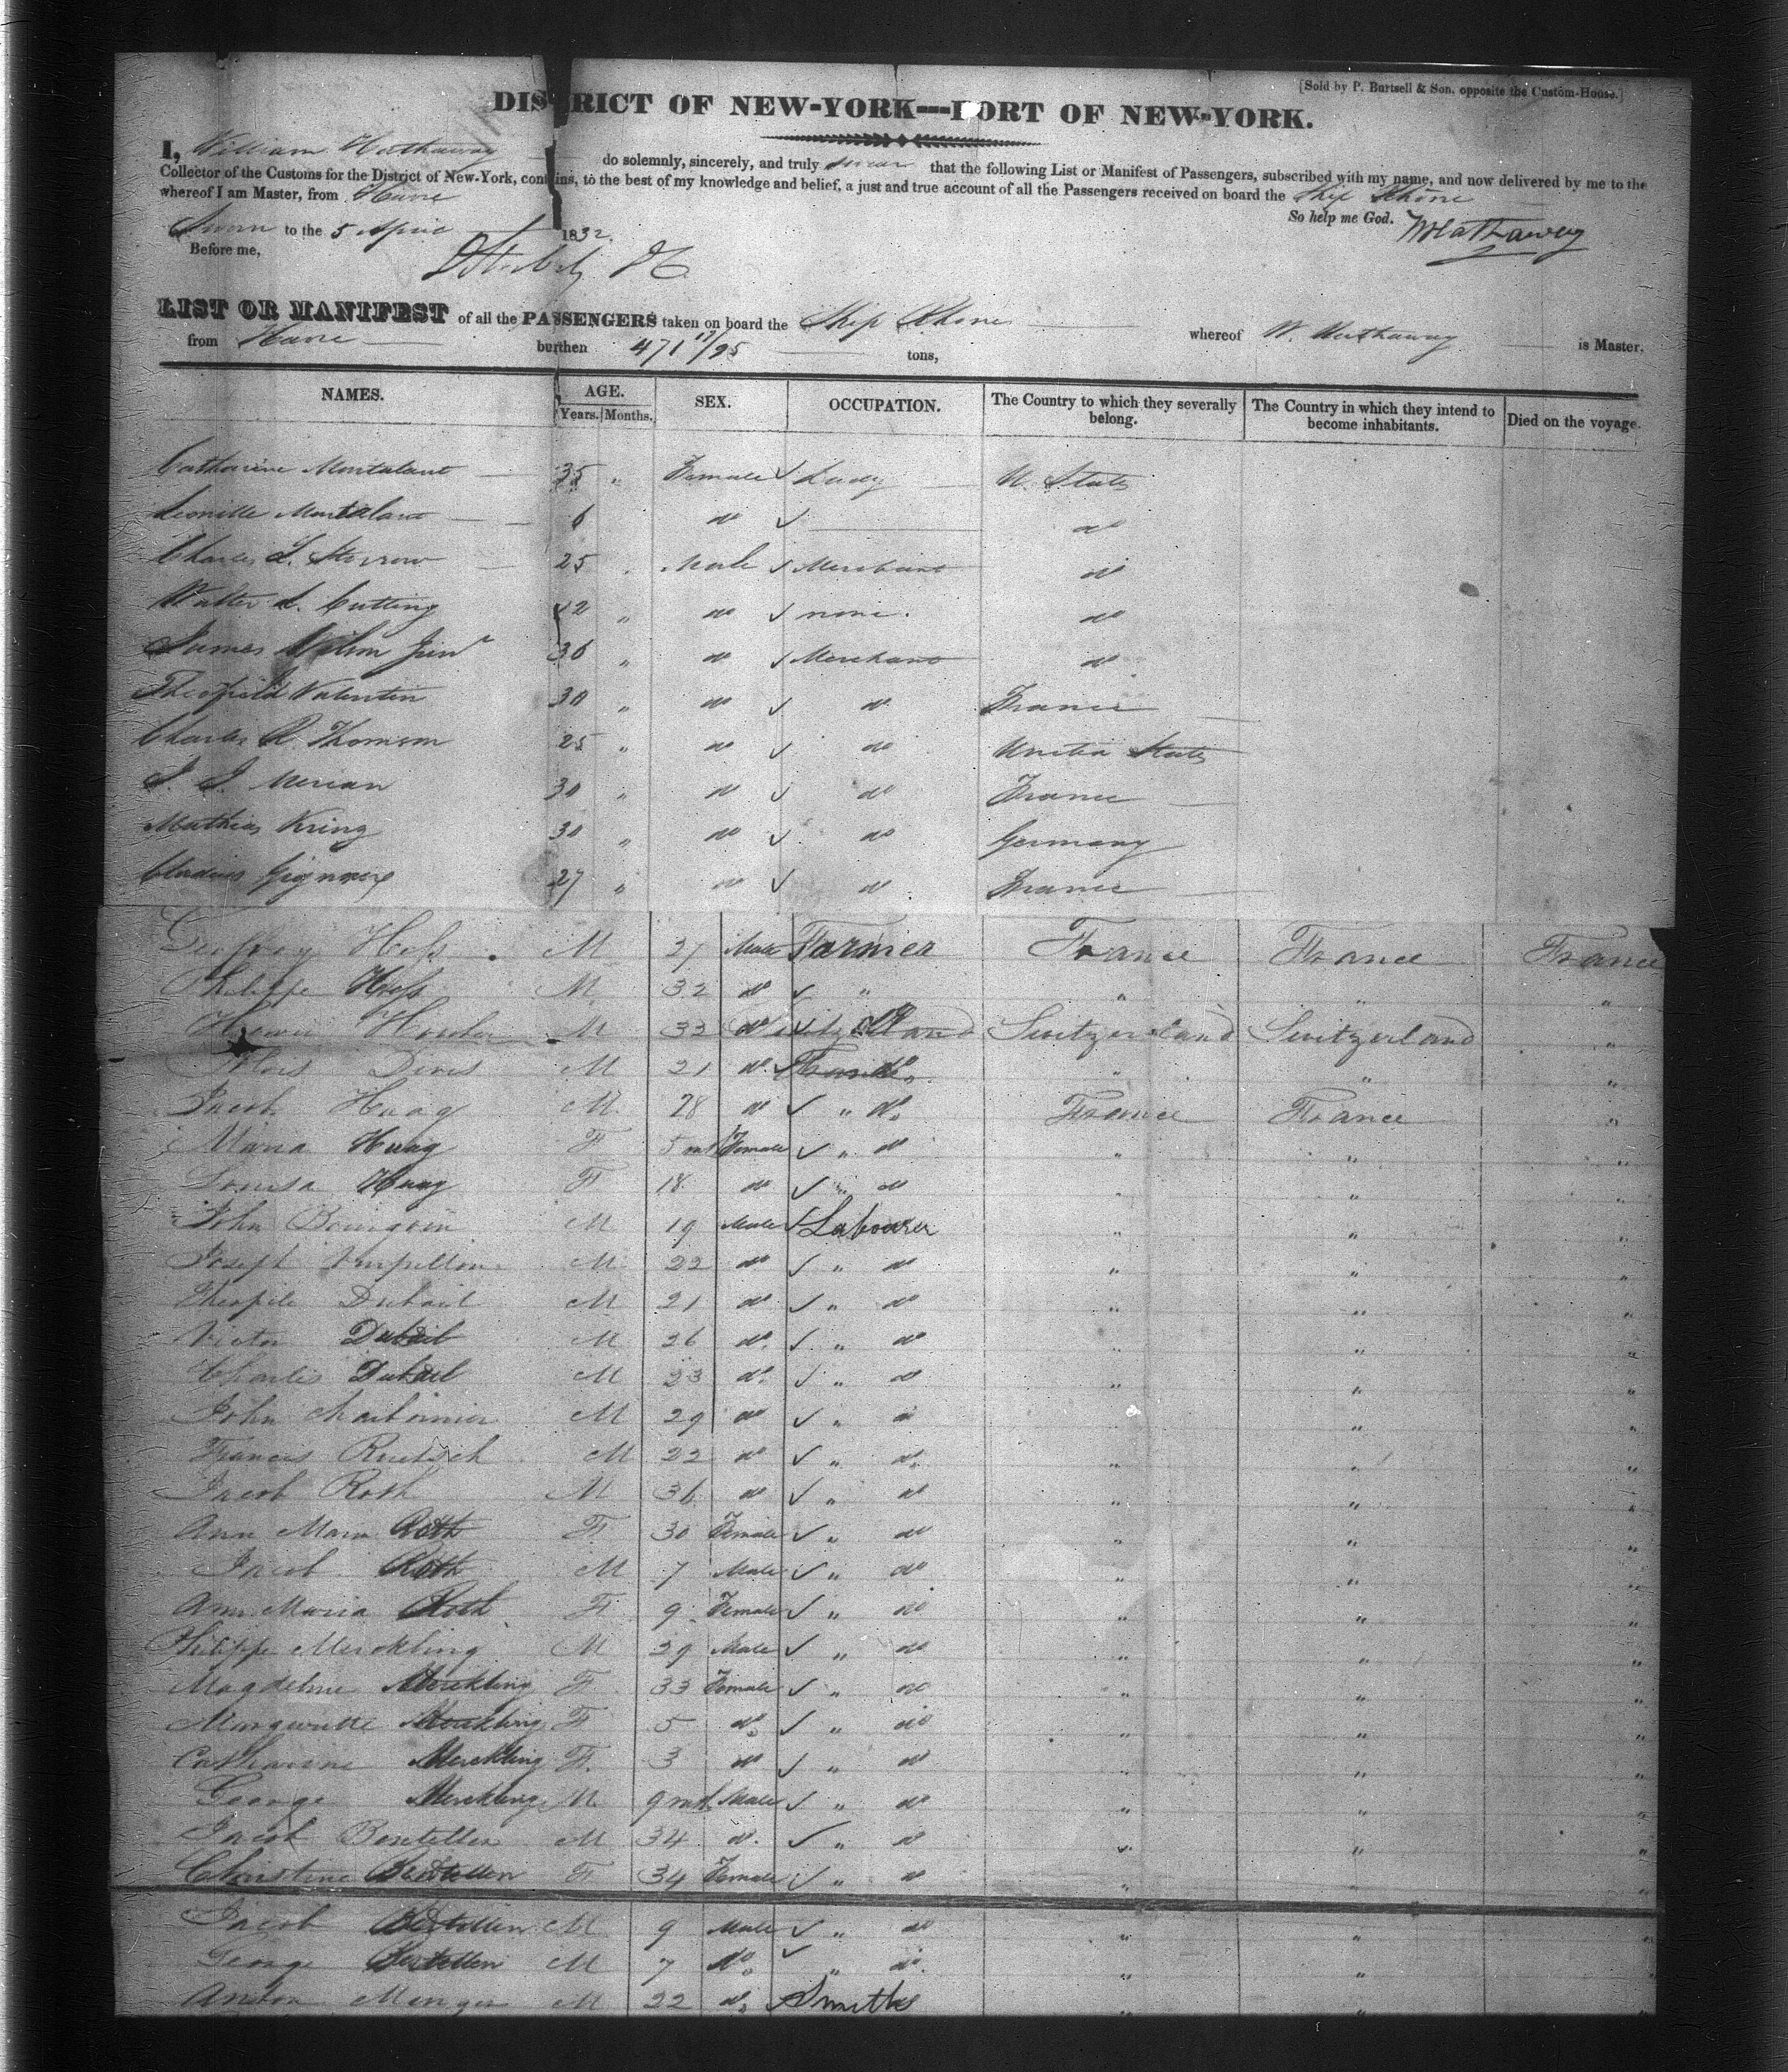 [Sold by P. Burtsell & Son, opposite the Custom-House.]
DISTRICT OF NEW-YORK---PORT OF NEW-YORK.
I, William Hathaway do solemnly, sincerely, and truly swear that the following List or Manifest of Passengers, subscribed with my name, and now delivered by me to the
Collector of the Customs for the District of New-York, contains, to the best of my knowledge and belief, a just and true account of all the Passengers received on board the Ship Rhone
whereof I am Master, from Havre
So help me God. WHathaway
Sworn to the 5 April 1832.
Before me,
LIST OR MANIFEST of all the PASSENGERS taken on board the Ship Rhone whereof W. Hathaway is Master,
from Havre burthen 471 17/95 tons,
NAMES. AGE. SEX. OCCUPATION. The Country to which they severally belong. The Country in which they intend to become inhabitants. Died on the voyage.
Years. Months.
Catharine Montalant 35 " Female ✓ Lady U. States
Leonille Montalant 6 do ✓ do
Charles S. Storrow 25 " Male ✓ Merchant do
Walter L. Cutting 12 " do ✓ none. do
James Wilson Junr 36 " do ✓ Merchant do
Valentin 30 " do ✓ do France
Charles R. Thomson 25 " do ✓ do United States
J. J. Merian 30 " do ✓ do France
Mathias Kring 30 " do ✓ do Germany
Claudius 27 " do ✓ do France
Geoffroy Hess M 27 Male Farmer France France France
Philippe Hess M. 32 do ✓ " " " "
M 33 do ✓ do Switzerland Switzerland "
M 21 do ✓ do " " "
Jacob Haag M. 28 do ✓ " do France France "
Maria Haag F 5 mt Female ✓ " do " " "
Louisa Haag F 18 do ✓ " do " " "
John Bourgoin M 19 Male ✓ Labourer " " "
Joseph M 22 do ✓ " do " " "
Theopile Dubail M 21 do ✓ " do " " "
Victor Dubail M 26 do ✓ " do " " "
Charles Dubail M 23 do ✓ " do " " "
John M 29 do ✓ " do " " "
Francis Ruetsch M 22 do ✓ " do " " "
Jacob Roth M 36 do ✓ " do " " "
Ann Maria Roth F 30 Female ✓ " do " " "
Jacob Roth M 7 Male ✓ " do " " "
Ann Maria Roth F 9 Female ✓ " do " " "
Philippe Merckling M 39 Male ✓ " do " " "
Magdeline Merckling F 33 Female ✓ " do " " "
Marguritte Merckling F 5 do ✓ " do " " "
Catharine Merckling F. 3 do ✓ " do " " "
George Merckling M. 9 mt. Male ✓ " do " " "
Jacob M 34 do ✓ " do " " "
Christine F 34 Female ✓ " do " " "
Jacob M 9 Male ✓ " do " " "
George M 7 do ✓ " do " " "
Anton Menger M 22 do Smiths " " "